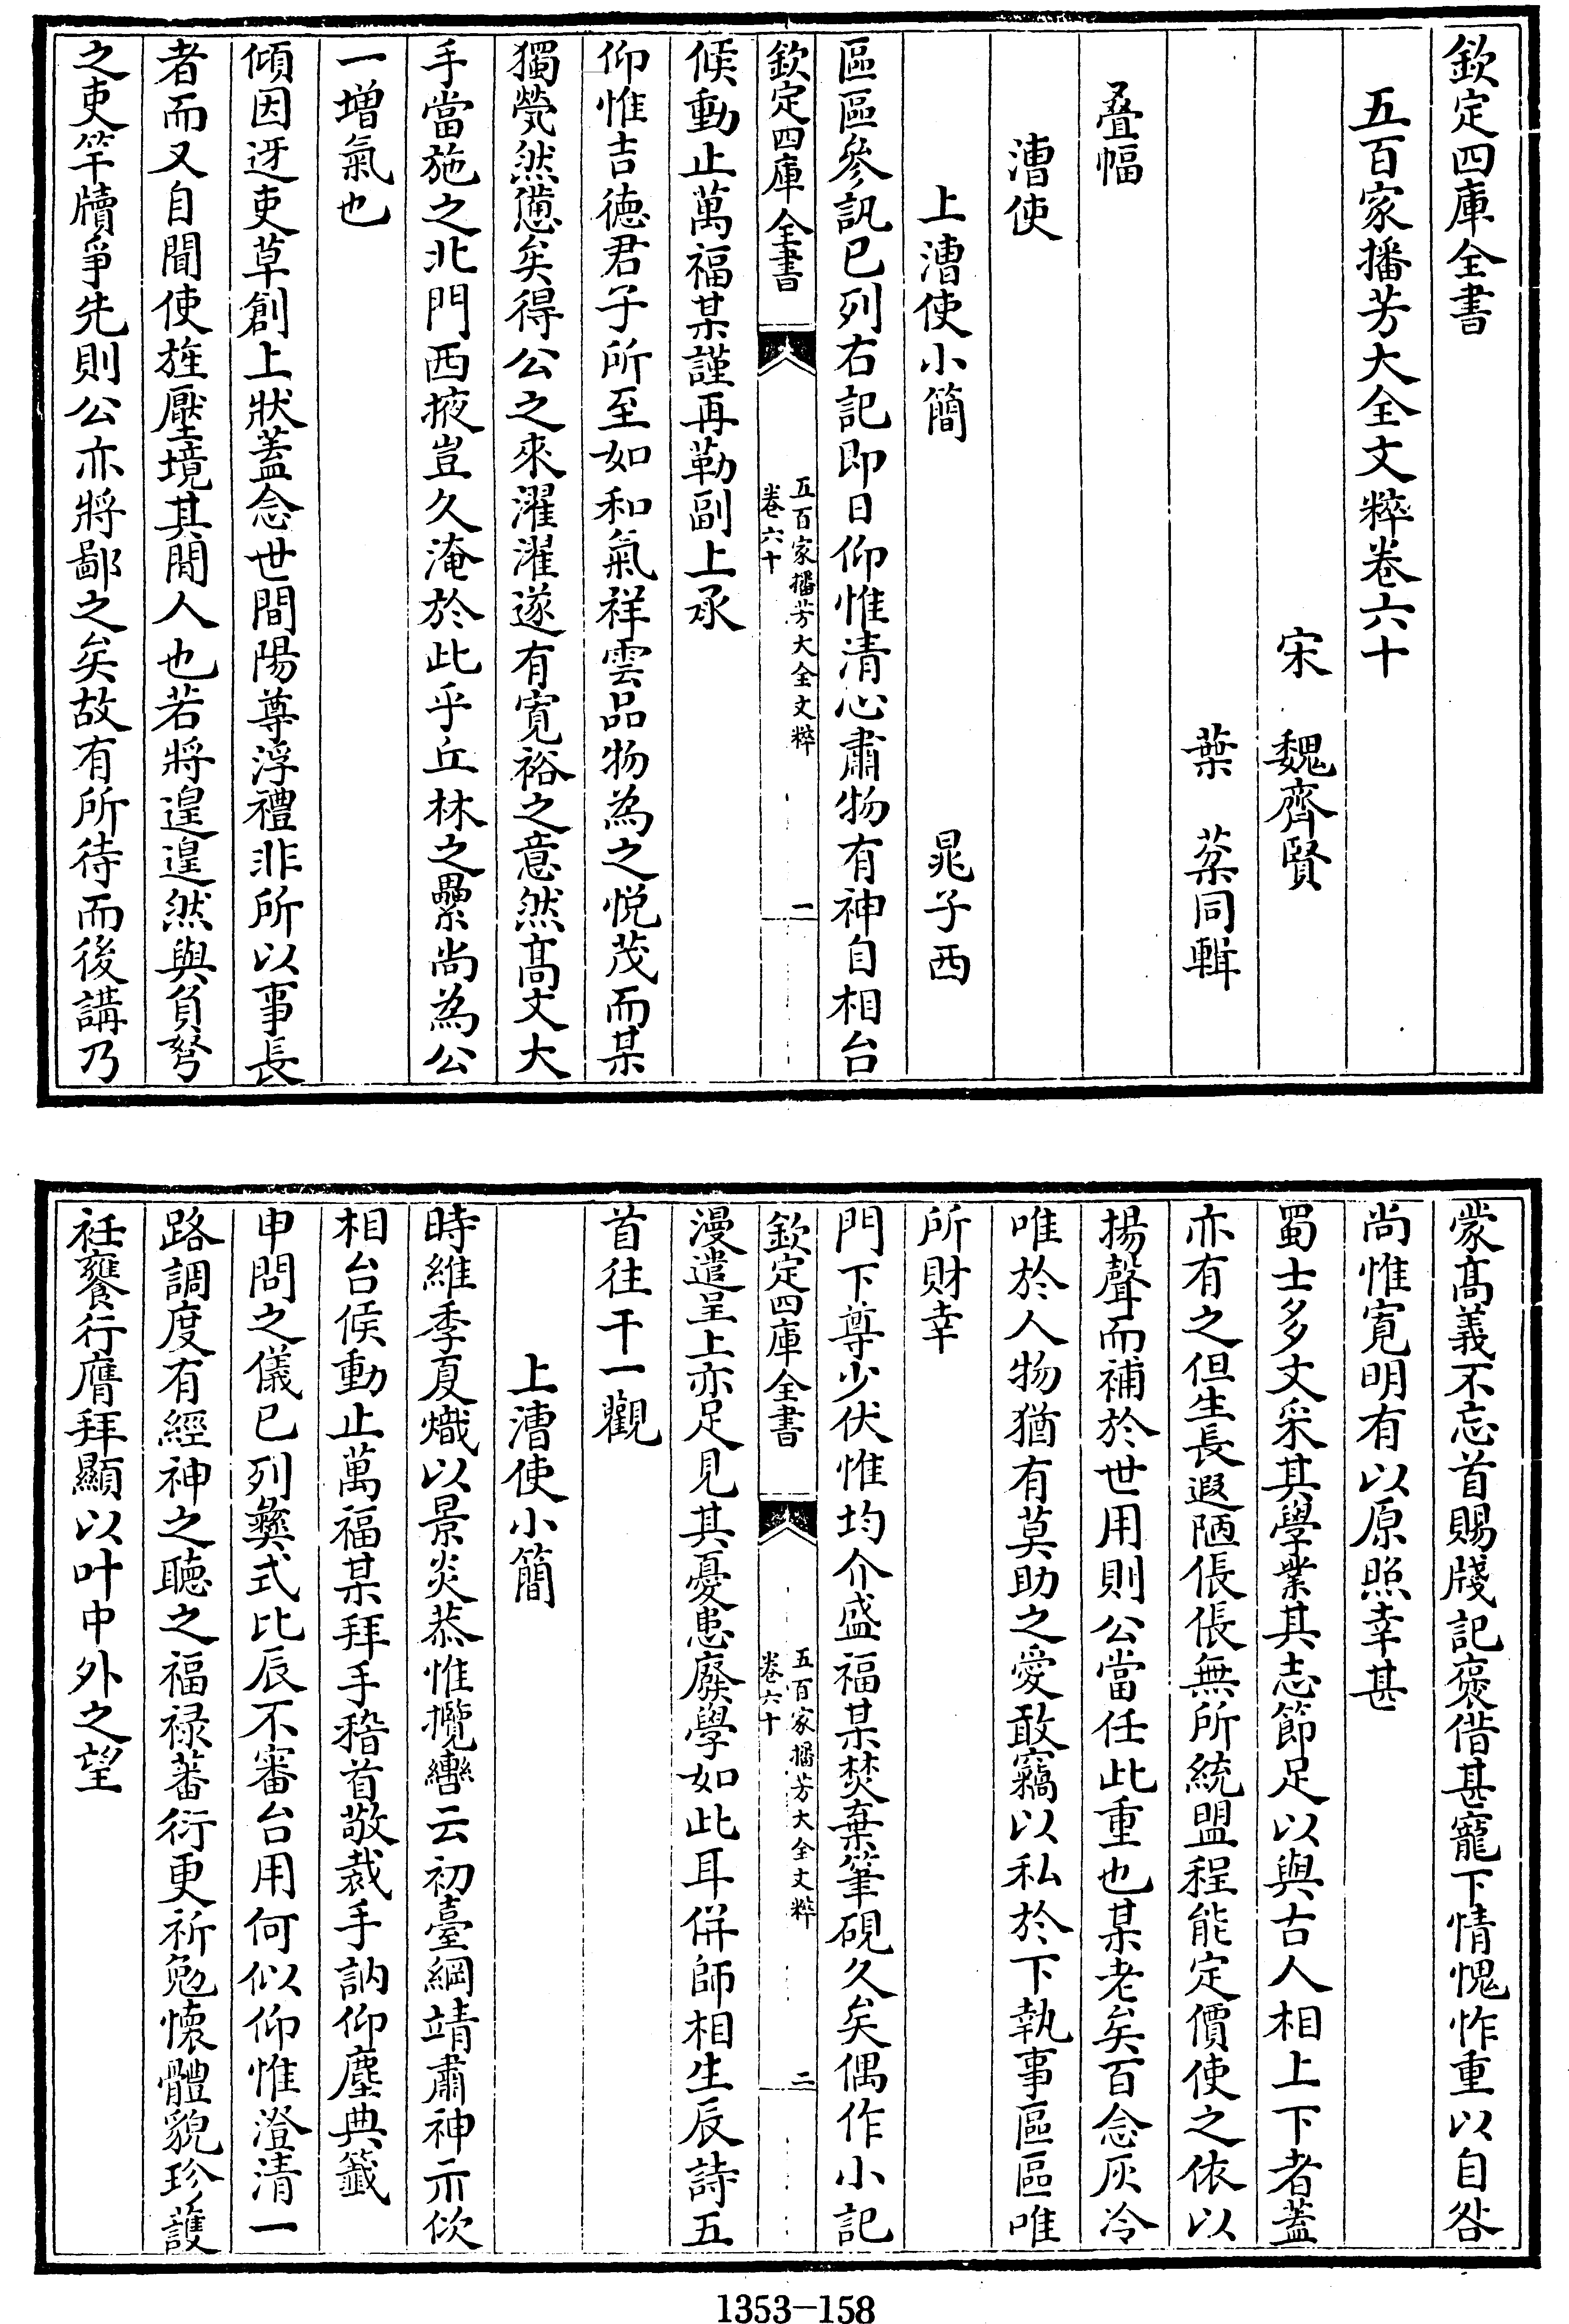 欽定四庫全書
五百家播芳大全文粹卷六十
宋　魏齊賢
葉　棻同輯
疊幅
漕使
上漕使小簡　晁子西
區區參訊已列右記即日仰惟清心肅物有神自相台
欽定四庫全書
五百家播芳大全文粹
卷六十
一
候動止萬福某謹再勒副上承
仰惟吉德君子所至如和氣祥雲品物為之悅茂而某
獨煢然憊矣得公之來濯濯遂有寬裕之意然高文大
手當施之北門西掖豈久淹於此乎丘林之纍尚為公
一增氣也
傾因迓吏草創上狀蓋念世間陽尊浮禮非所以事長
者而又自聞使旌壓境其閒人也若將遑遑然與負弩
之吏竿牘爭先則公亦將鄙之矣故有所待而後講乃
蒙高義不忘首賜牋記褒借甚寵下情愧怍重以自咎
尚惟寛明有以原照幸甚
蜀士多文采其學業其志節足以與古人相上下者蓋
亦有之但生長遐陋倀倀無所統盟程能定價使之依以
揚聲而補於世用則公當任此重也某老矣百念灰冷
唯於人物猶有莫助之愛敢竊以私於下執事區區唯
所財幸
門下尊少伏惟均介盛福某焚棄筆硯久矣偶作小記
欽定四庫全書
五百家播芳大全文粹
卷六十
二
漫遣呈上亦足見其憂患廢學如此耳併師相生辰詩五
首往干一觀
上漕使小簡
時維季夏熾以景炎恭惟攬轡云初臺綱靖肅神示佽
相台候動止萬福某拜手稽首敬裁手訥仰塵典籤
申問之儀已列彝式比辰不審台用何似仰惟澄清一
路調度有經神之聽之福祿蕃衍更祈勉懷體貌珍護
衽饔行膺拜顯以叶中外之望
1353—158